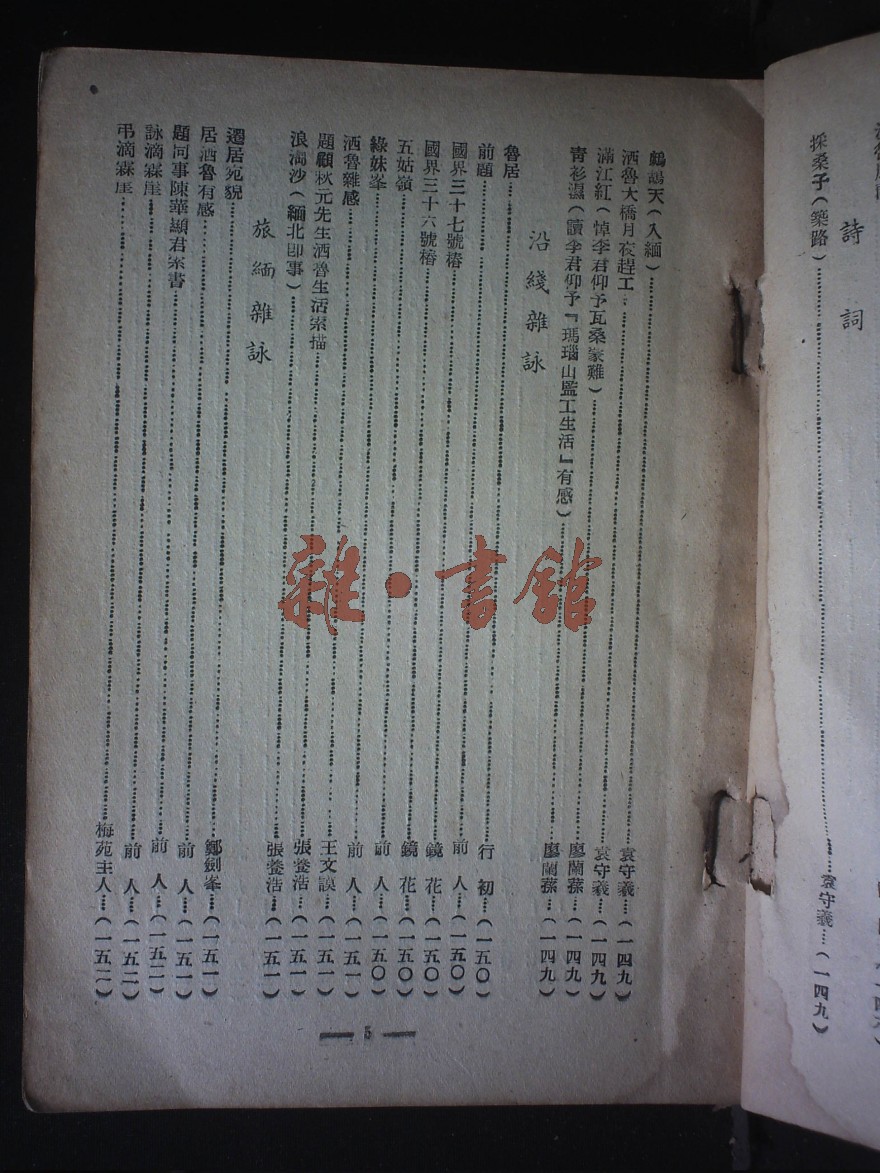 詩詞
採桑子(築路)……袁守義……(一四九)
鷓鴣天(入緬)……袁守義……(一四九)
洒魯大橋月夜趕工……袁守義……(一四九)
滿江紅(悼李君仰予瓦桑蒙難)……廖蘭蓀……(一四九)
青衫濕(讀李君仰予『瑪瑙山監工生活』有感)……廖蘭蓀……(一四九)
沿綫雜詠
魯居……行初……(一五〇)
前題……前人……(一五〇)
國界三十七號樁……鏡花……(一五〇)
國界三十六號樁……鏡花……(一五〇)
五姑嶺……前人……(一五〇)
綠妹峯……前人……(一五一)
洒魯雜感……王文謨……(一五一)
題顧秋元先生洒魯生活素描……張鎣浩……(一五一)
浪淘沙(緬北即事)……張鎣浩……(一五一)
旅緬雜詠
遷居宛貌……鄭劍峯……(一五一)
居洒魯有感……前人……(一五一)
題同事陳華顯君索書……前人……(一五二)
詠滴霖崖……前人……(一五二)
弔滴霖崖……梅苑主人……(一五二)
— 5 —
雜·書館